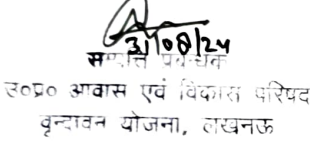 31/08/24
सम्पत्ति प्रबन्धक
उ०प्र० आवास एवं विकास परिषद
वृन्दावन योजना, लखनऊ